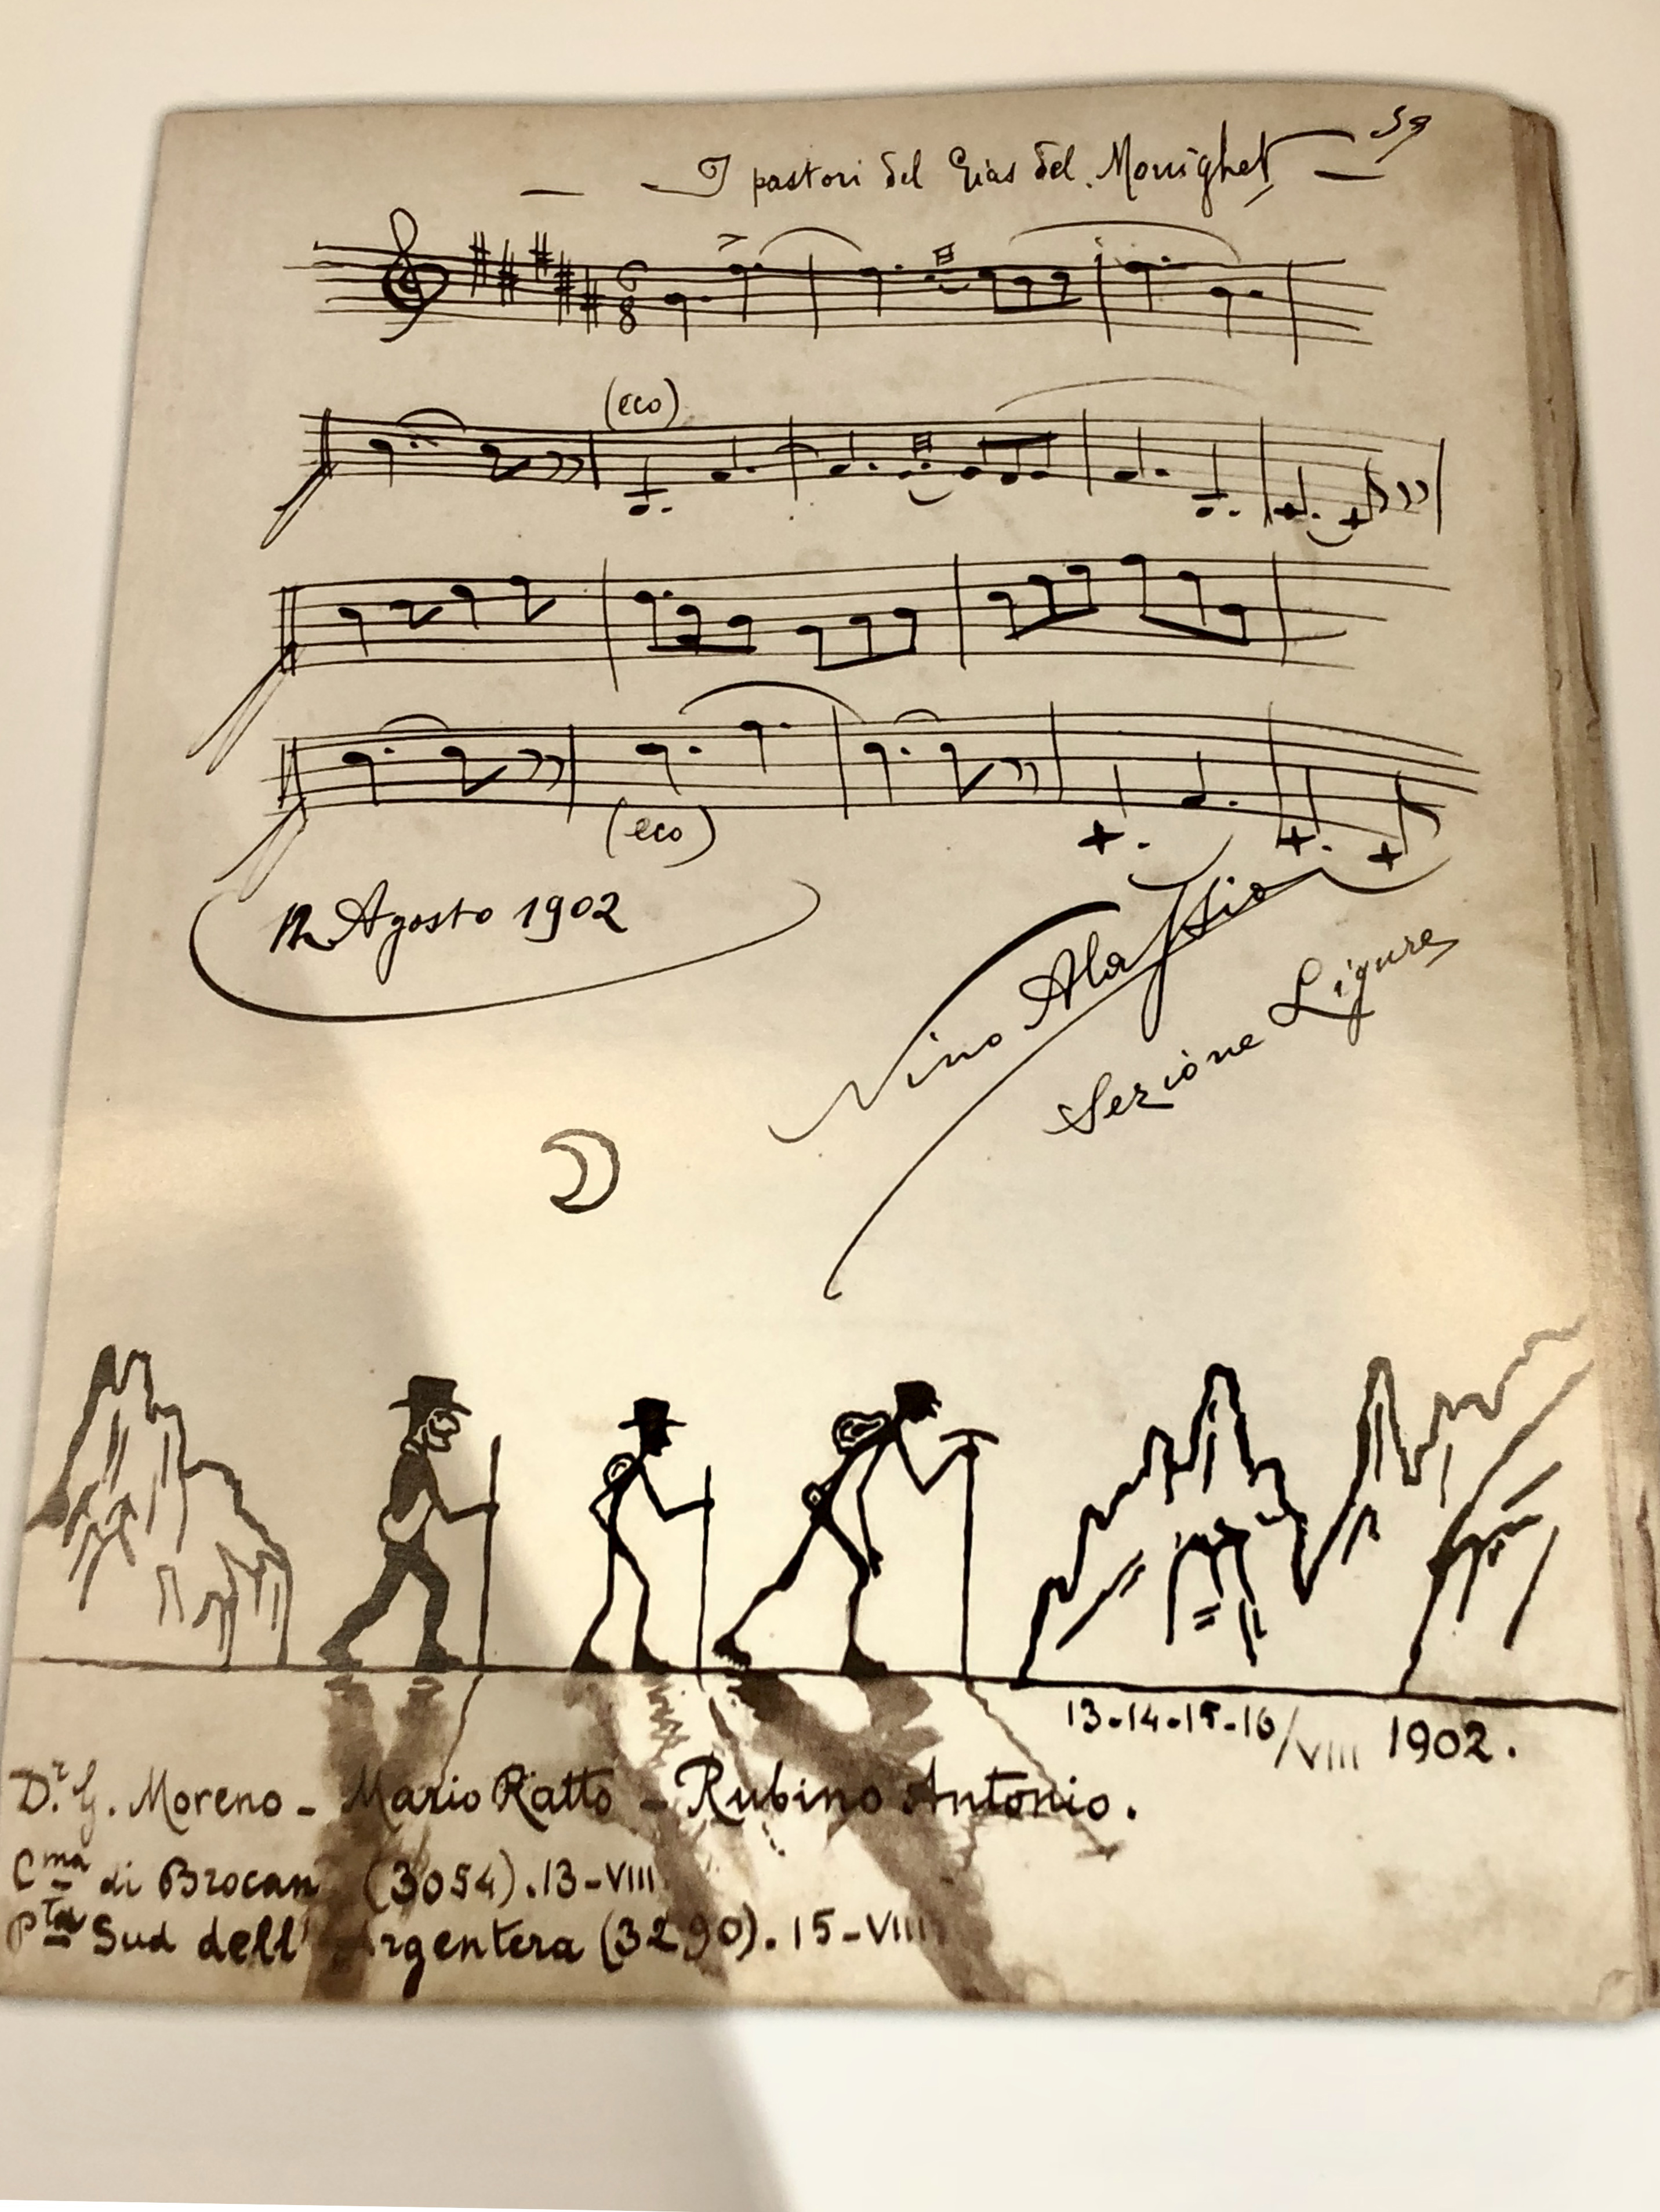 — I pastori del Gias del Monighet — 59
6
8
(eco)
(eco)
12 Agosto 1902
Nino Alassio
Sezione Ligure
13-14-15-16/VIII 1902.
Dr. G. Moreno - Mario Ratto - Rubino Antonio.
Cma di Brocan (3054). 13-VIII
Pta Sud dell'Argentera (3290). 15-VIII